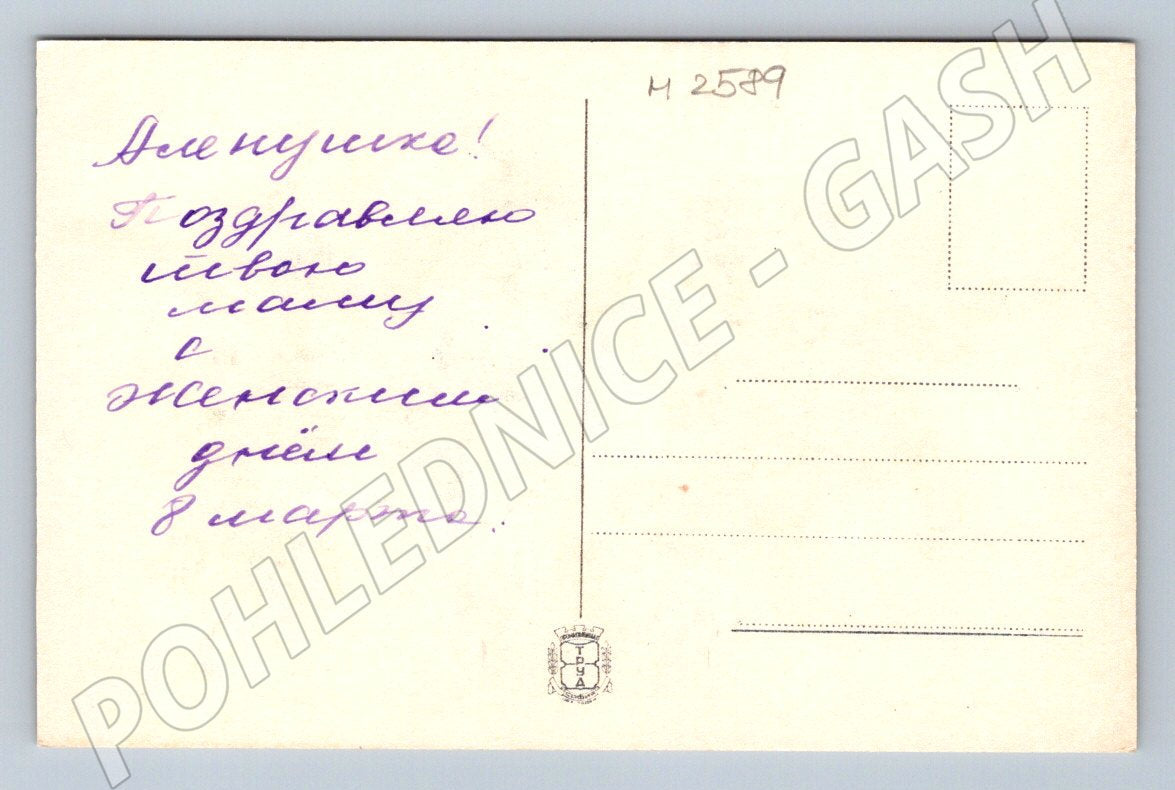 м 2589
Аленушка!
Поздравляю
твою
маму
с
женским
днём
8 марта.
ТРУД
POHLEDNICE - GASH